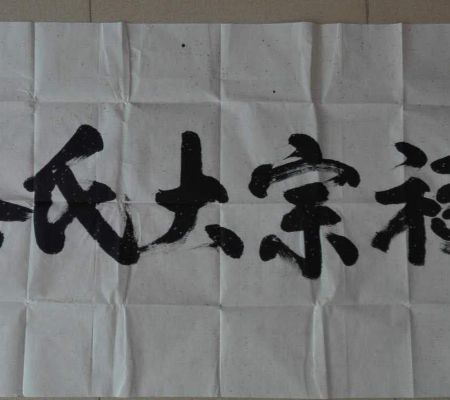 氏大宗祠